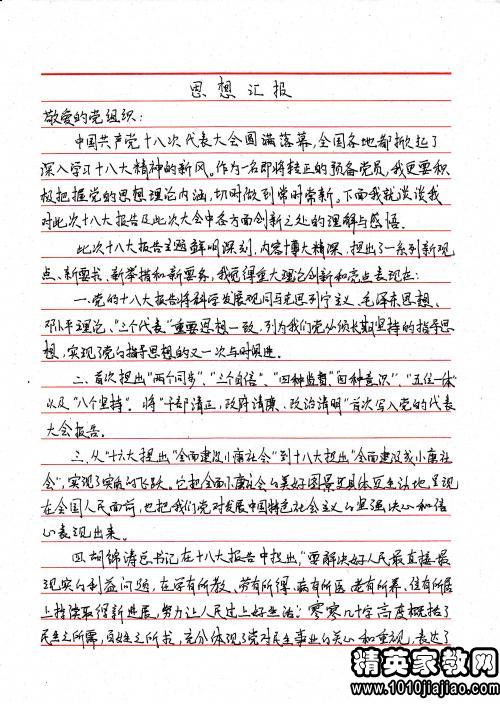 思想汇报
敬爱的党组织：
中国共产党十八次代表大会圆满落幕，全国各地都掀起了
深入学习十八大精神的新风。作为一名即将转正的预备党员，我更要积
极把握党的思想理论内涵，切时做到常时常新。下面我就谈谈我
对此次十八大报告及此次大会中各方面创新之处的理解与感悟。
此次十八大报告主题鲜明深刻，内容博大精深，提出了一系列新观
点、新要求、新举措和新要务，我觉得重大理论创新和亮点表现在：
一.党的十八大报告将科学发展观同马克思列宁主义、毛泽东思想、
邓小平理论、"三个代表"重要思想一致，列为我们党必须长期坚持的指导思
想，实现了党的指导思想的又一次与时俱进。
二.首次提出"两个同步"、"三个自信"、"四种监督"、"四种意识"、"五位一体"
以及"八个坚持"。将"干部清正，政府清廉，政治清明"首次写入党的代表
大会报告。
三.从"十六大提出"全面建设小康社会"到十八大提出"全面建成小康社
会"，实现了实质的飞跃。它把全面小康社会的美好图景更具体更生动地呈现
在全国人民面前，也把我们党对发展中国特色社会主义的坚强决心和信
心表现出来。
四.胡锦涛总书记在十八大报告中提出，"要解决好人民最直接最
现实的利益问题，在学有所教、劳有所得、病有所医、老有所养、住有所居
上持续取得新进展，努力让人民过上好生活；零零几十字高度概括了
民生之所需，百姓之所求，充分体现了党对民生事业的关心和重视，表达了
精英家教网
www.1010jiajiao.com